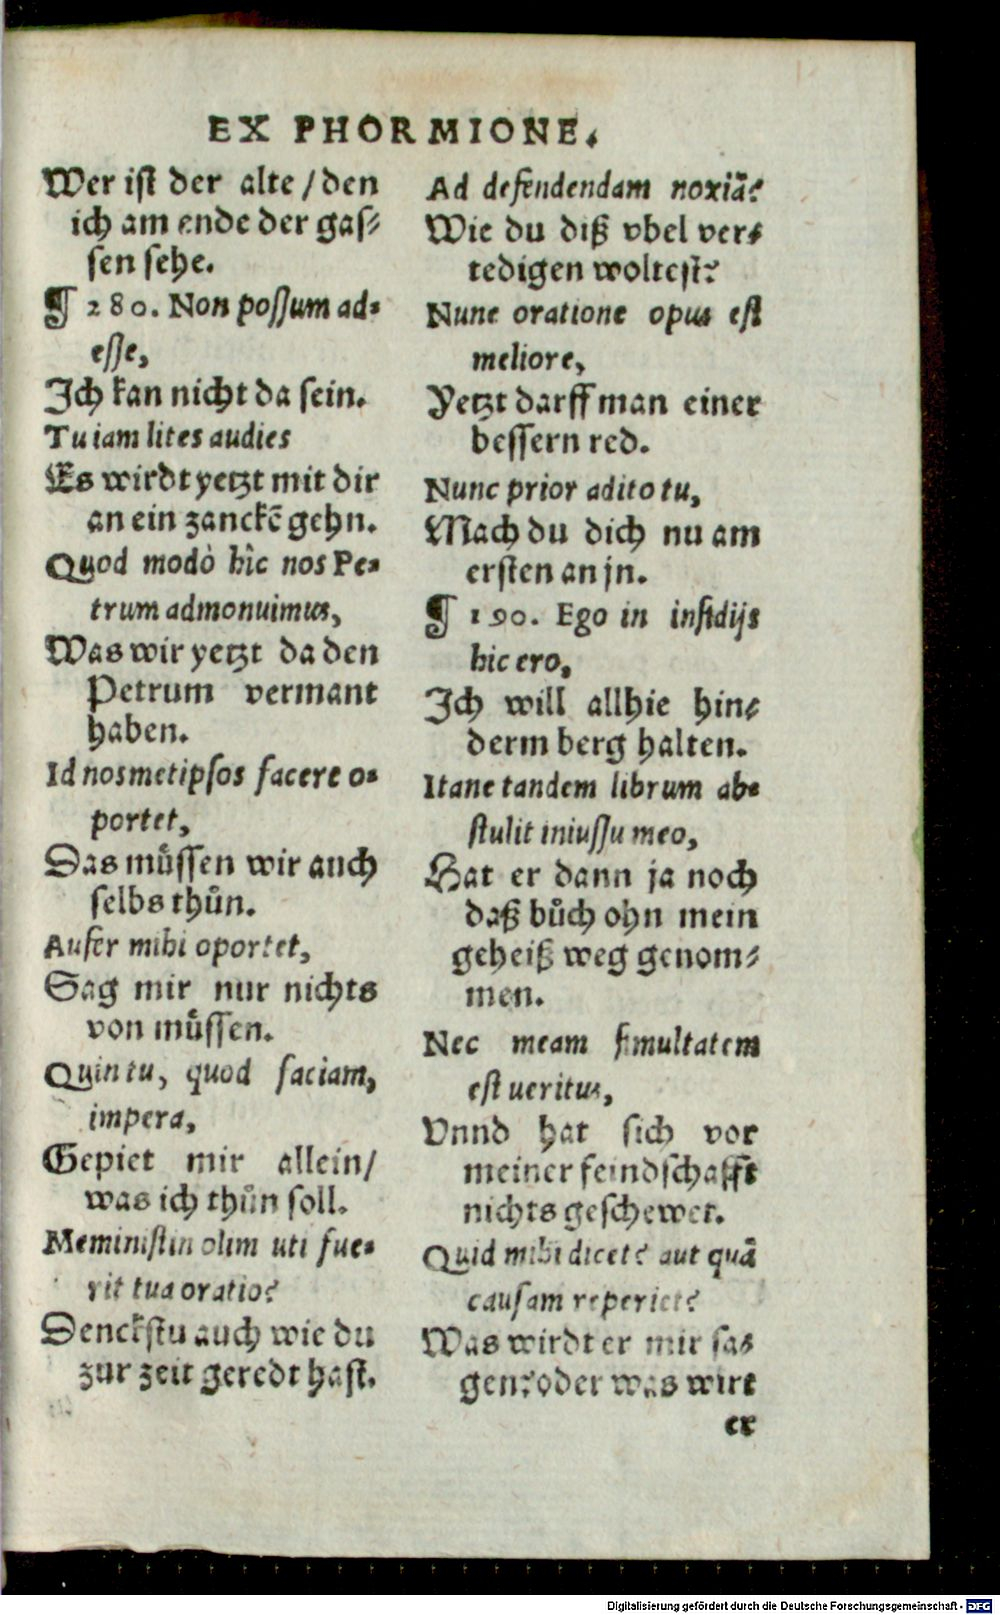 EX PHORMIONE.
Wer ist der alte / den
ich am ende der gas⸗
sen sehe.
¶ 280. Non possum ad-
esse,
Ich kan nicht da sein.
Tu iam lites audies
Es wirdt yetzt mit dir
an ein zanckē gehn.
Quod modò hîc nos Pe-
trum admonuimus,
Was wir yetzt da den
Petrum vermant
haben.
Id nosmetipsos facere o-
portet,
Das muͤssen wir auch
selbs thuͦn.
Aufer mihi oportet,
Sag mir nur nichts
von muͤssen.
Quin tu, quod faciam,
impera,
Gepiet mir allein /
was ich thuͦn soll.
Meministin olim uti fue-
rit tua oratio?
Denckstu auch wie du
zur zeit geredt hast.
Ad defendendam noxiã?
Wie du diß vbel ver⸗
tedigen woltest?
Nunc oratione opus est
meliore,
Yetzt darff man einer
bessern red.
Nunc prior adito tu,
Mach du dich nu am
ersten an jn.
¶ 190. Ego in insidijs
hic ero,
Ich will allhie hin⸗
derm berg halten.
Itane tandem librum ab-
stulit iniussu meo,
Hat er dann ja noch
daß buͦch ohn mein
geheiß weg genom⸗
men.
Nec meam simultatem
est ueritus,
Vnnd hat sich vor
meiner feindschafft
nichts geschewet.
Quid mihi dicet? aut quã
causam reperiet?
Was wirdt er mir sa⸗
gen? oder was wirt
er
Digitalisierung gefördert durch die Deutsche Forschungsgemeinschaft - DFG